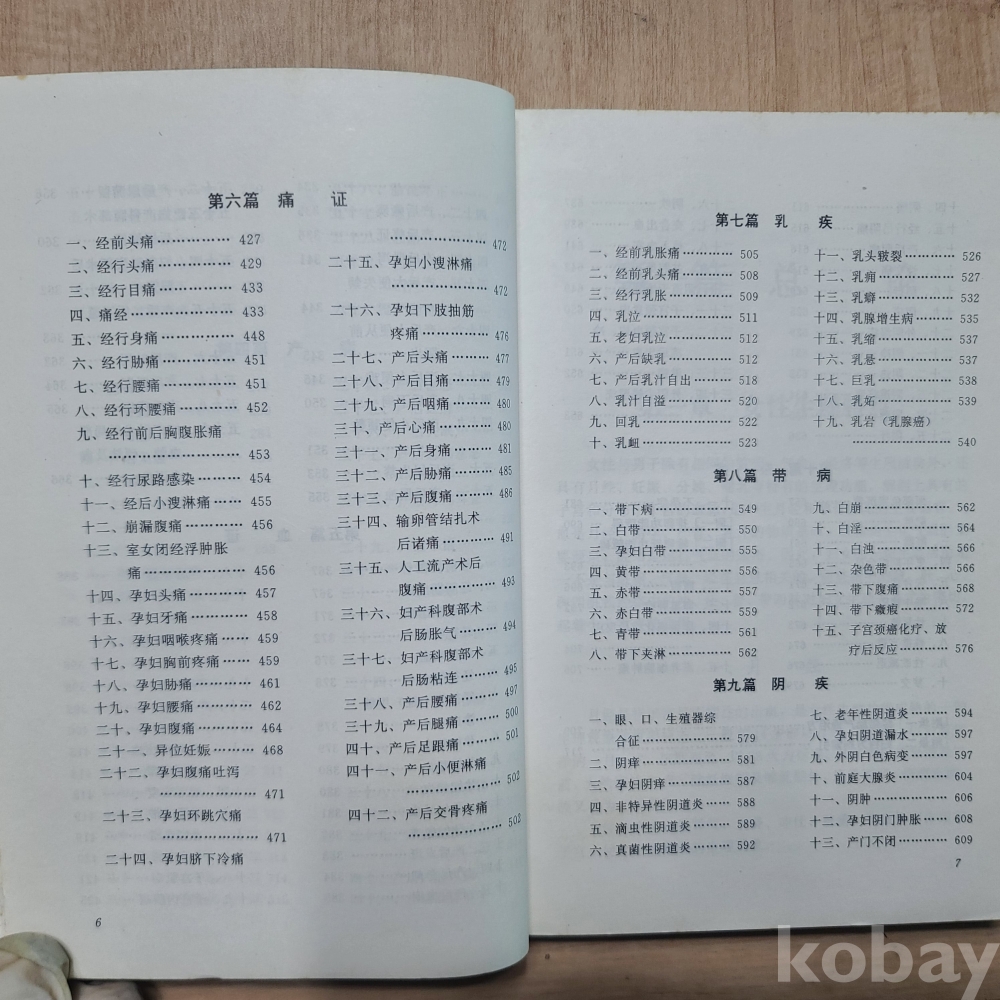 第六篇 痛 证
一、经前头痛…………… 427
二、经行头痛…………… 429
三、经行目痛…………… 433
四、痛经………………… 433
五、经行身痛…………… 448
六、经行胁痛…………… 451
七、经行腰痛…………… 451
八、经行环腰痛………… 452
九、经行前后胸腹胀痛
………………… 453
十、经行尿路感染……… 454
十一、经后小溲淋痛…… 455
十二、崩漏腹痛………… 456
十三、室女闭经浮肿胀
痛……………… 456
十四、孕妇头痛………… 457
十五、孕妇牙痛………… 458
十六、孕妇咽喉疼痛…… 459
十七、孕妇胸前疼痛…… 459
十八、孕妇胁痛………… 461
十九、孕妇腰痛………… 462
二十、孕妇腹痛………… 464
二十一、异位妊娠……… 468
二十二、孕妇腹痛吐泻
………………… 471
二十三、孕妇环跳穴痛
………………… 471
二十四、孕妇脐下冷痛
6
………………… 472
二十五、孕妇小溲淋痛
………………… 472
二十六、孕妇下肢抽筋
疼痛…………… 476
二十七、产后头痛……… 477
二十八、产后目痛……… 479
二十九、产后咽痛……… 480
三十、产后心痛………… 480
三十一、产后身痛……… 481
三十二、产后胁痛……… 485
三十三、产后腹痛……… 486
三十四、输卵管结扎术
后诸痛………… 491
三十五、人工流产术后
腹痛…………… 493
三十六、妇产科腹部术
后肠胀气……… 494
三十七、妇产科腹部术
后肠粘连……… 495
三十八、产后腰痛……… 497
三十九、产后腿痛……… 500
四十、产后足跟痛……… 501
四十一、产后小便淋痛
………………… 502
四十二、产后交骨疼痛
………………… 503
第七篇 乳 疾
一、经前乳胀痛………… 505
二、经前乳头痛………… 508
三、经行乳胀…………… 509
四、乳泣………………… 511
五、老妇乳泣…………… 512
六、产后缺乳…………… 512
七、产后乳汁自出……… 518
八、乳汁自溢…………… 520
九、回乳………………… 522
十、乳衄………………… 523
十一、乳头皲裂………… 526
十二、乳痈……………… 527
十三、乳癖……………… 532
十四、乳腺增生病……… 535
十五、乳缩……………… 537
十六、乳悬……………… 537
十七、巨乳……………… 538
十八、乳妬……………… 539
十九、乳岩（乳腺癌）
………………… 540
第八篇 带 病
一、带下病……………… 549
二、白带………………… 550
三、孕妇白带…………… 555
四、黄带………………… 555
五、赤带………………… 557
六、赤白带……………… 559
七、青带………………… 561
八、带下夹淋…………… 562
九、白崩………………… 562
十、白淫………………… 564
十一、白浊……………… 566
十二、杂色带…………… 566
十三、带下腹痛………… 568
十四、带下癥瘕………… 572
十五、子宫颈癌化疗、放
疗后反应……… 576
第九篇 阴 疾
一、眼、口、生殖器综
合征…………… 579
二、阴痒………………… 581
三、孕妇阴痒…………… 587
四、非特异性阴道炎…… 588
五、滴虫性阴道炎……… 589
六、真菌性阴道炎……… 592
七、老年性阴道炎……… 594
八、孕妇阴道漏水……… 597
九、外阴白色病变……… 597
十、前庭大腺炎………… 604
十一、阴肿……………… 606
十二、孕妇阴门肿胀…… 608
十三、产门不闭………… 609
7
kobay